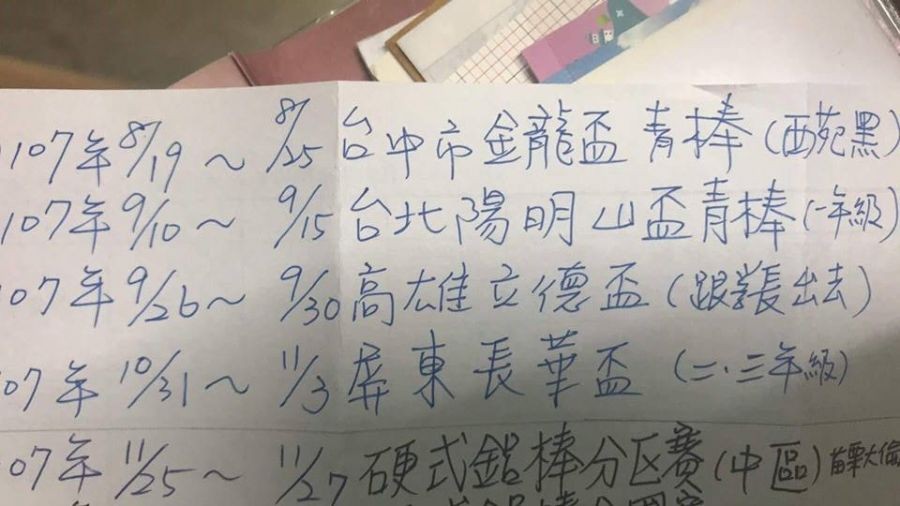 107年8/19～8/25台中市金龍盃青棒(西苑黑)
107年9/10～9/15台北陽明山盃青棒(一年級)
07年9/26～9/30高雄立德盃(跟學長出去)
07年10/31～11/3屏東長華盃(二.三年級)
07年11/25～11/27硬式鋁棒分区賽(中區)苗栗大倫